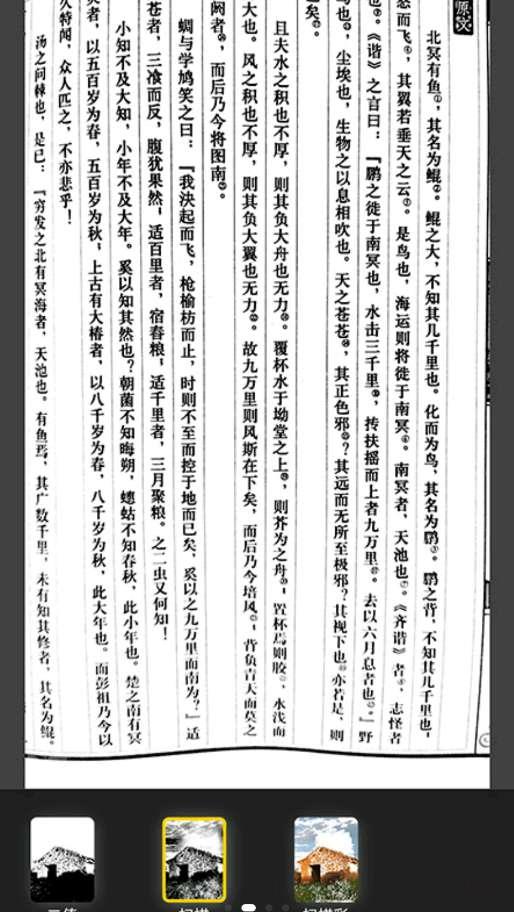 原文
北冥有鱼①，其名为鲲②。鲲之大，不知其几千里也。化而为鸟，其名为鹏③。鹏之背，不知其几千里也，
怒而飞，其翼若垂天之云。是鸟也，海运则将徙于南冥。南冥者，天池也。《齐谐》者，志怪者
也。《谐》之言曰：『鹏之徙于南冥也，水击三千里，抟扶摇而上者九万里。去以六月息者也。』野
马也，尘埃也，生物之以息相吹也。天之苍苍，其正色邪？其远而无所至极邪？其视下也，亦若是，则
已矣。
且夫水之积也不厚，则其负大舟也无力。覆杯水于坳堂之上，则芥为之舟，置杯焉则胶，水浅而
大也。风之积也不厚，则其负大翼也无力。故九万里则风斯在下矣，而后乃今培风，背负青天而莫之
阏者，而后乃今将图南。
蜩与学鸠笑之曰：『我决起而飞，枪榆枋而止，时则不至而控于地而已矣，奚以之九万里而南为？』适
苍者，三飡而反，腹犹果然；适百里者，宿舂粮，适千里者，三月聚粮。之二虫又何知！
小知不及大知，小年不及大年。奚以知其然也？朝菌不知晦朔，蟪蛄不知春秋，此小年也。楚之南有冥
灵者，以五百岁为春，五百岁为秋；上古有大椿者，以八千岁为春，八千岁为秋，此大年也。而彭祖乃今以
久特闻，众人匹之，不亦悲乎！
汤之问棘也，是已：『穷发之北有冥海者，天池也。有鱼焉，其广数千里，未有知其修者，其名为鲲。